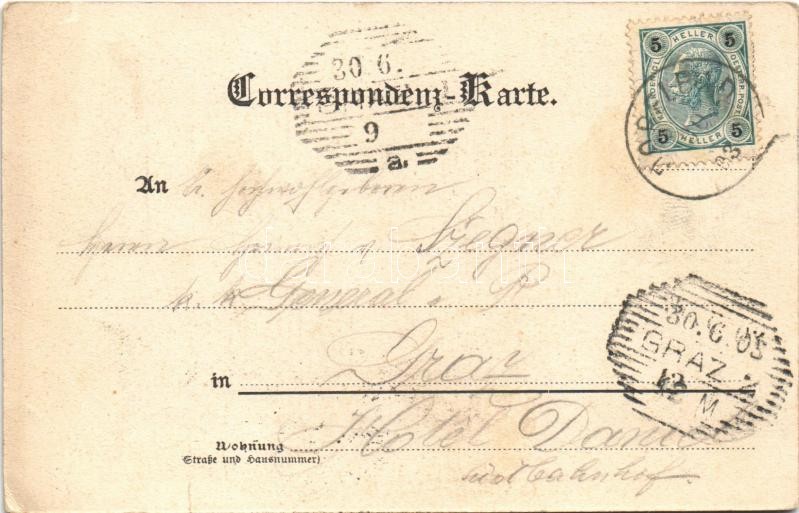 5 HELLER 5
5 HELLER 5
30.6.
9
a.
Correspondenz-Karte.
An Sr. Hochwohlgeboren
Herrn
k. k. General
in Graz
Hotel Daniel
Südbahnhof.
Wohnung
(Straße und Hausnummer)
30.6.03
GRAZ 2
12 M